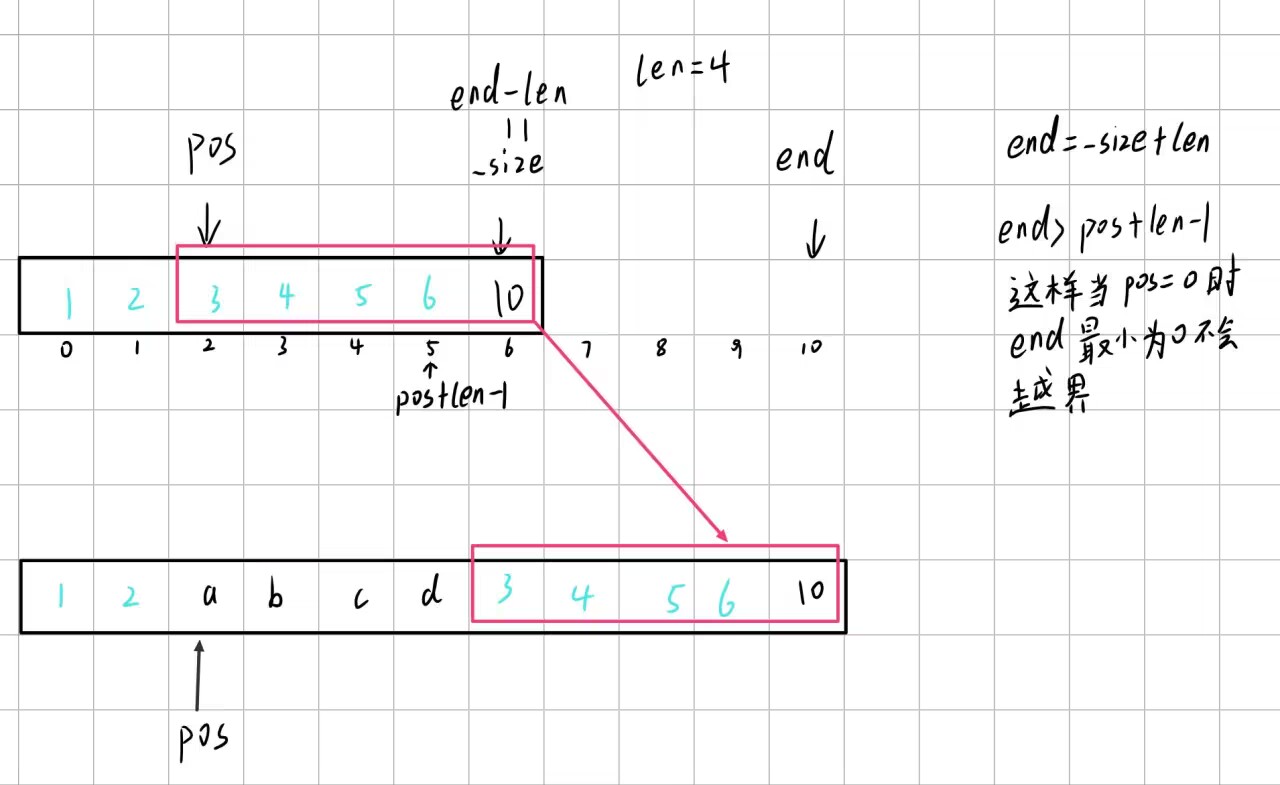 len=4
end-len
||
_size
pos
end
end=_size+len
end>pos+len-1
这样当pos=0时
end最小为0不会
越界
1 2 3 4 5 6 10
0 1 2 3 4 5 6 7 8 9 10
pos+len-1
1 2 a b c d 3 4 5 6 10
pos